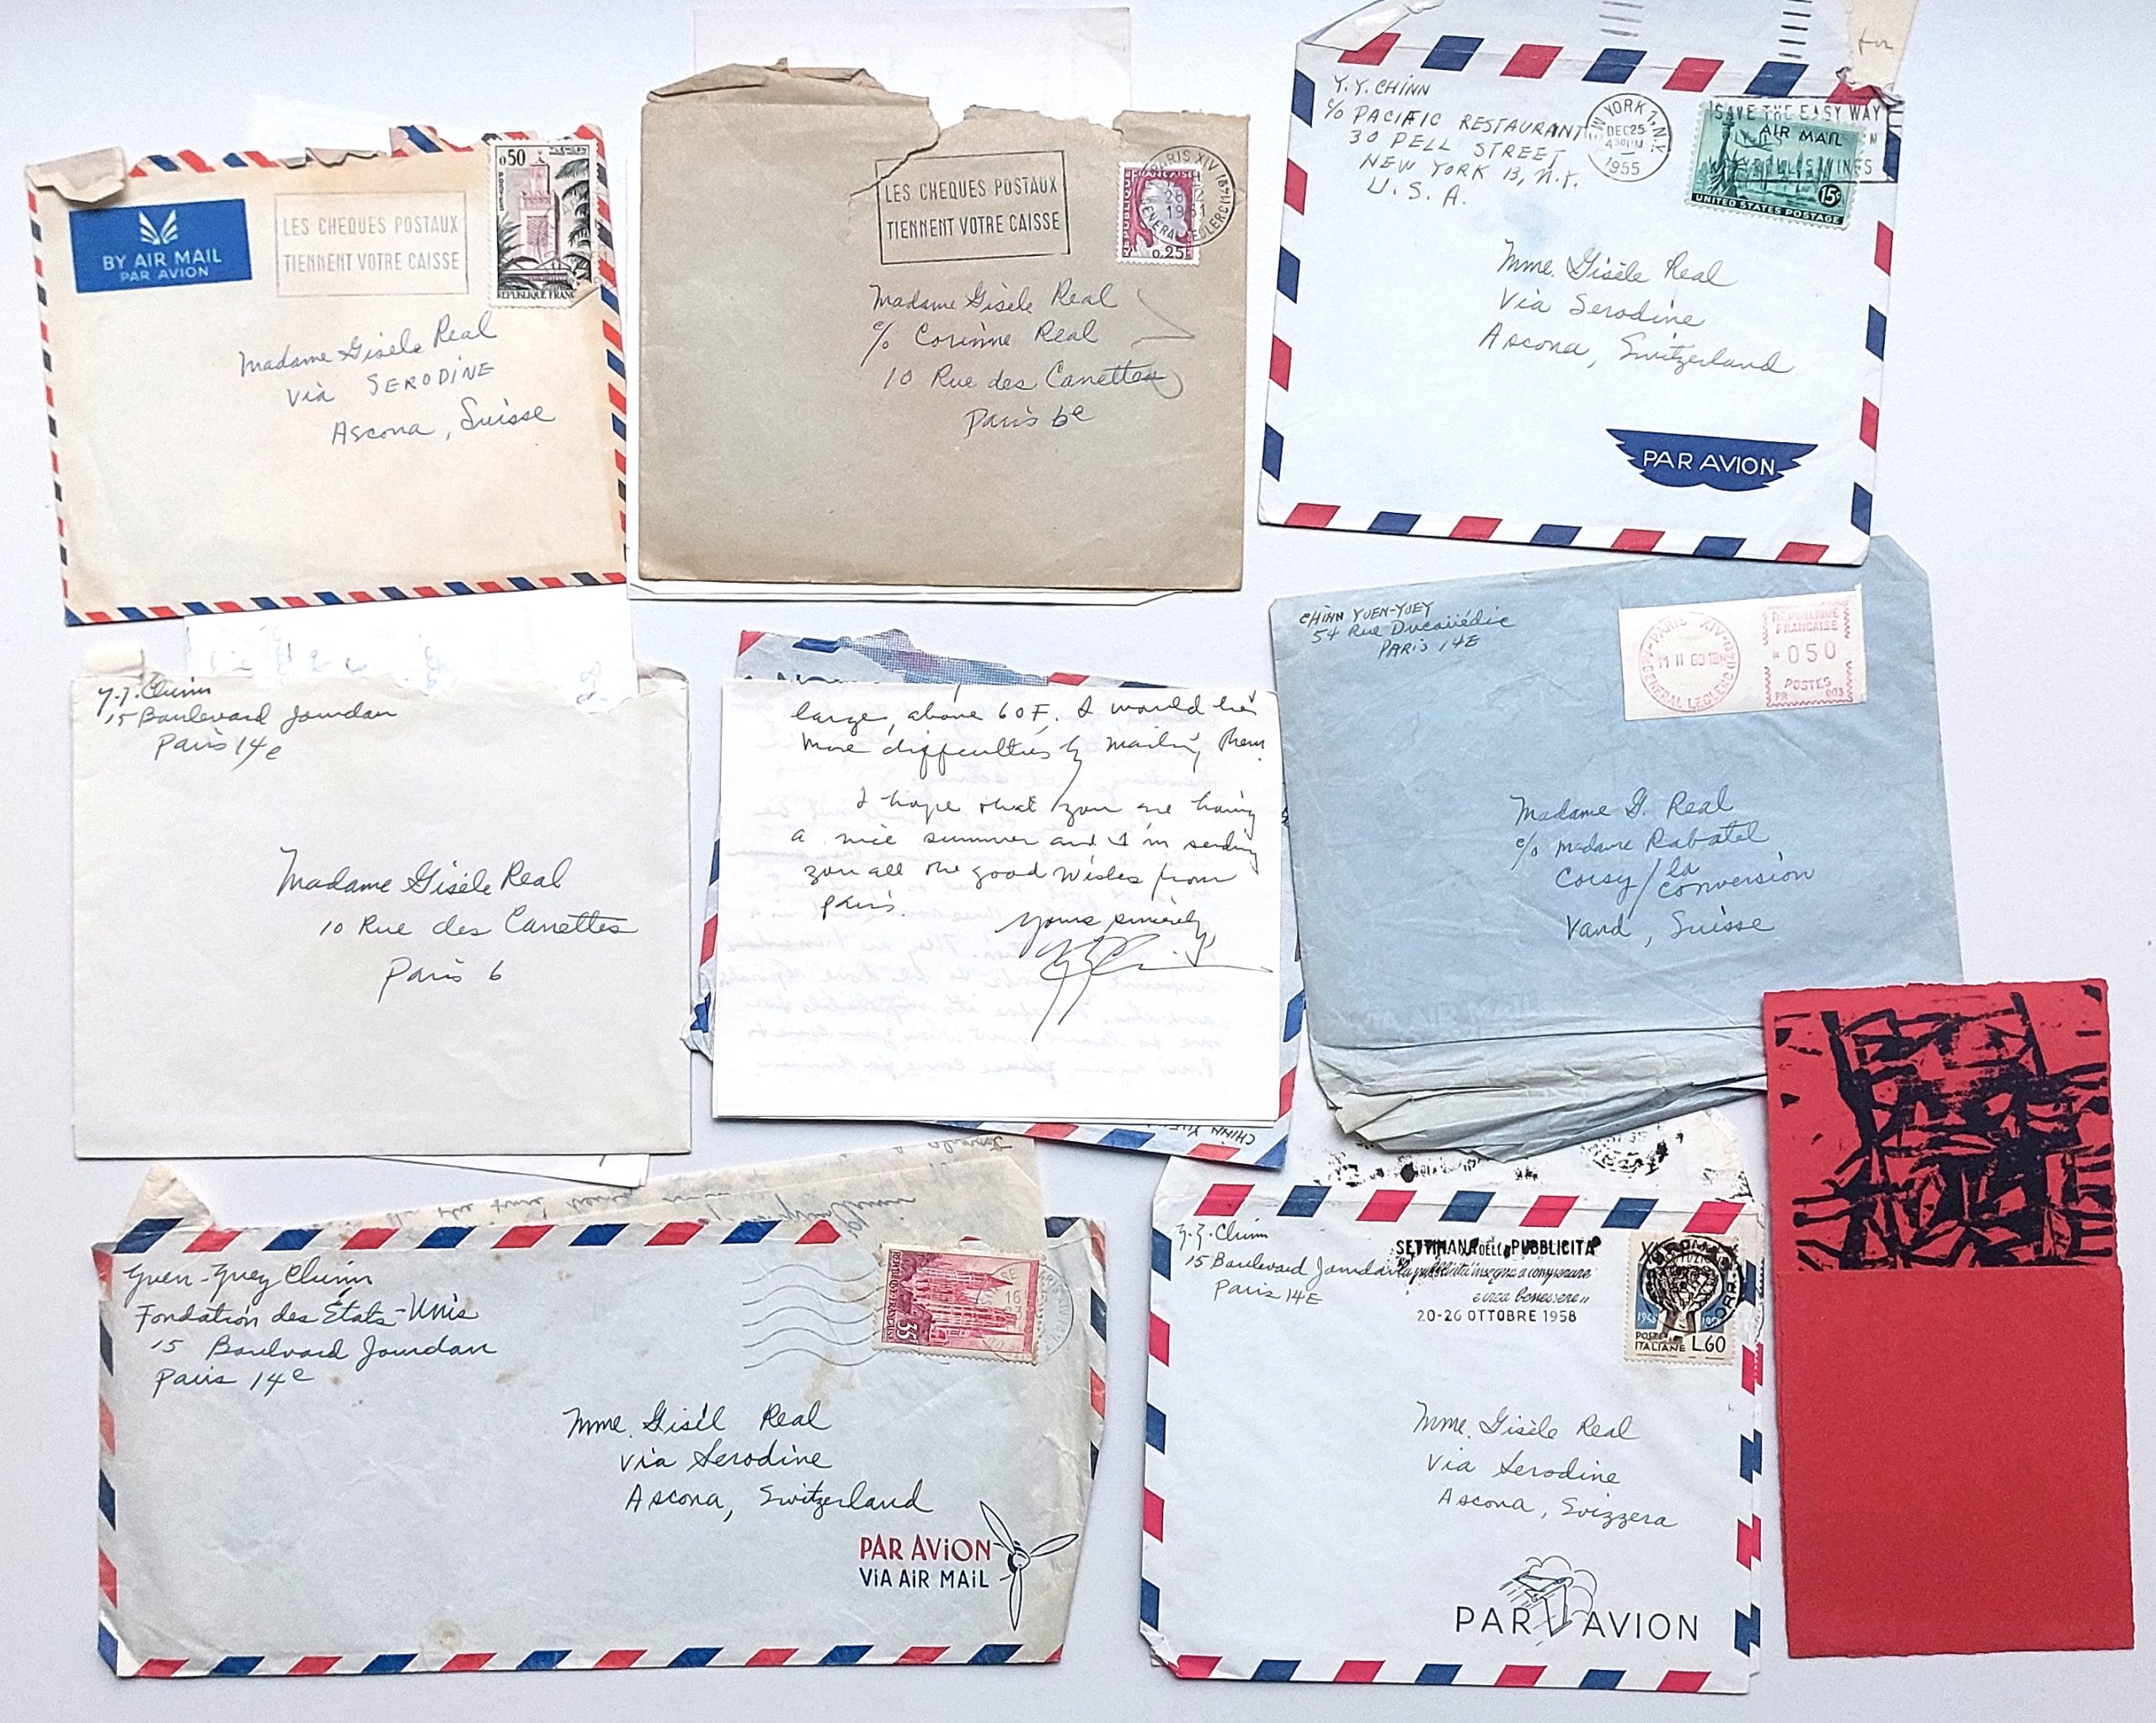 BY AIR MAIL
PAR AVION
LES CHEQUES POSTAUX
TIENNENT VOTRE CAISSE
0.50
TLEMCEN
REPUBLIQUE FRANC
Madame Gisèle Real
Via SERODINE
Ascona, Suisse
LES CHEQUES POSTAUX
TIENNENT VOTRE CAISSE
PARIS XIV
1961
GENERAL LECLERC (14e)
0.25
Madame Gisèle Real
c/o Corinne Real
10 Rue des Canettes
Paris 6e
for
Y.Y. CHINN
c/o PACIFIC RESTAURANT
30 PELL STREET
NEW YORK 13, N.Y.
U.S.A.
W YORK 1, N.Y.
DEC 25
1955
SAVE THE EASY WAY
AIR MAIL
15¢
UNITED STATES POSTAGE
Mme. Gisèle Real
Via Serodine
Ascona, Switzerland
PAR AVION
Y.Y. Chinn
15 Boulevard Jourdan
Paris 14e
Madame Gisèle Real
10 Rue des Canettes
Paris 6
large, above 60F. I would
more difficulties by mailing them.
I hope that you are having
a nice summer and I'm sending
you all the good wishes from
Paris.
Yours sincerely,
CHINN
CHINN YUEN-YUEY
54 Rue Ducouédic
PARIS 14E
PARIS XIV
GENERAL LECLERC
REPUBLIQUE
FRANCAISE
050
POSTES
PR 003
Madame G. Real
c/o Madame Rabatel
Corsy / la
Conversion
Vaud, Suisse
AIR MAIL
Yuen-Yuey Chinn
Fondation des États-Unis
15 Boulevard Jourdan
Paris 14e
16
35F
Mme. Gisèl Real
Via Serodine
Ascona, Switzerland
PAR AVION
VIA AIR MAIL
Y.Y. Chinn
15 Boulevard Jourdan
Paris 14E
SETTIMANA DELLA PUBBLICITA'
la pubblicità insegna a comperare
e crea benessere
20-26 OTTOBRE 1958
POSTE
ITALIANE L.60
Mme. Gisèle Real
Via Serodine
Ascona, Svizzera
PAR AVION